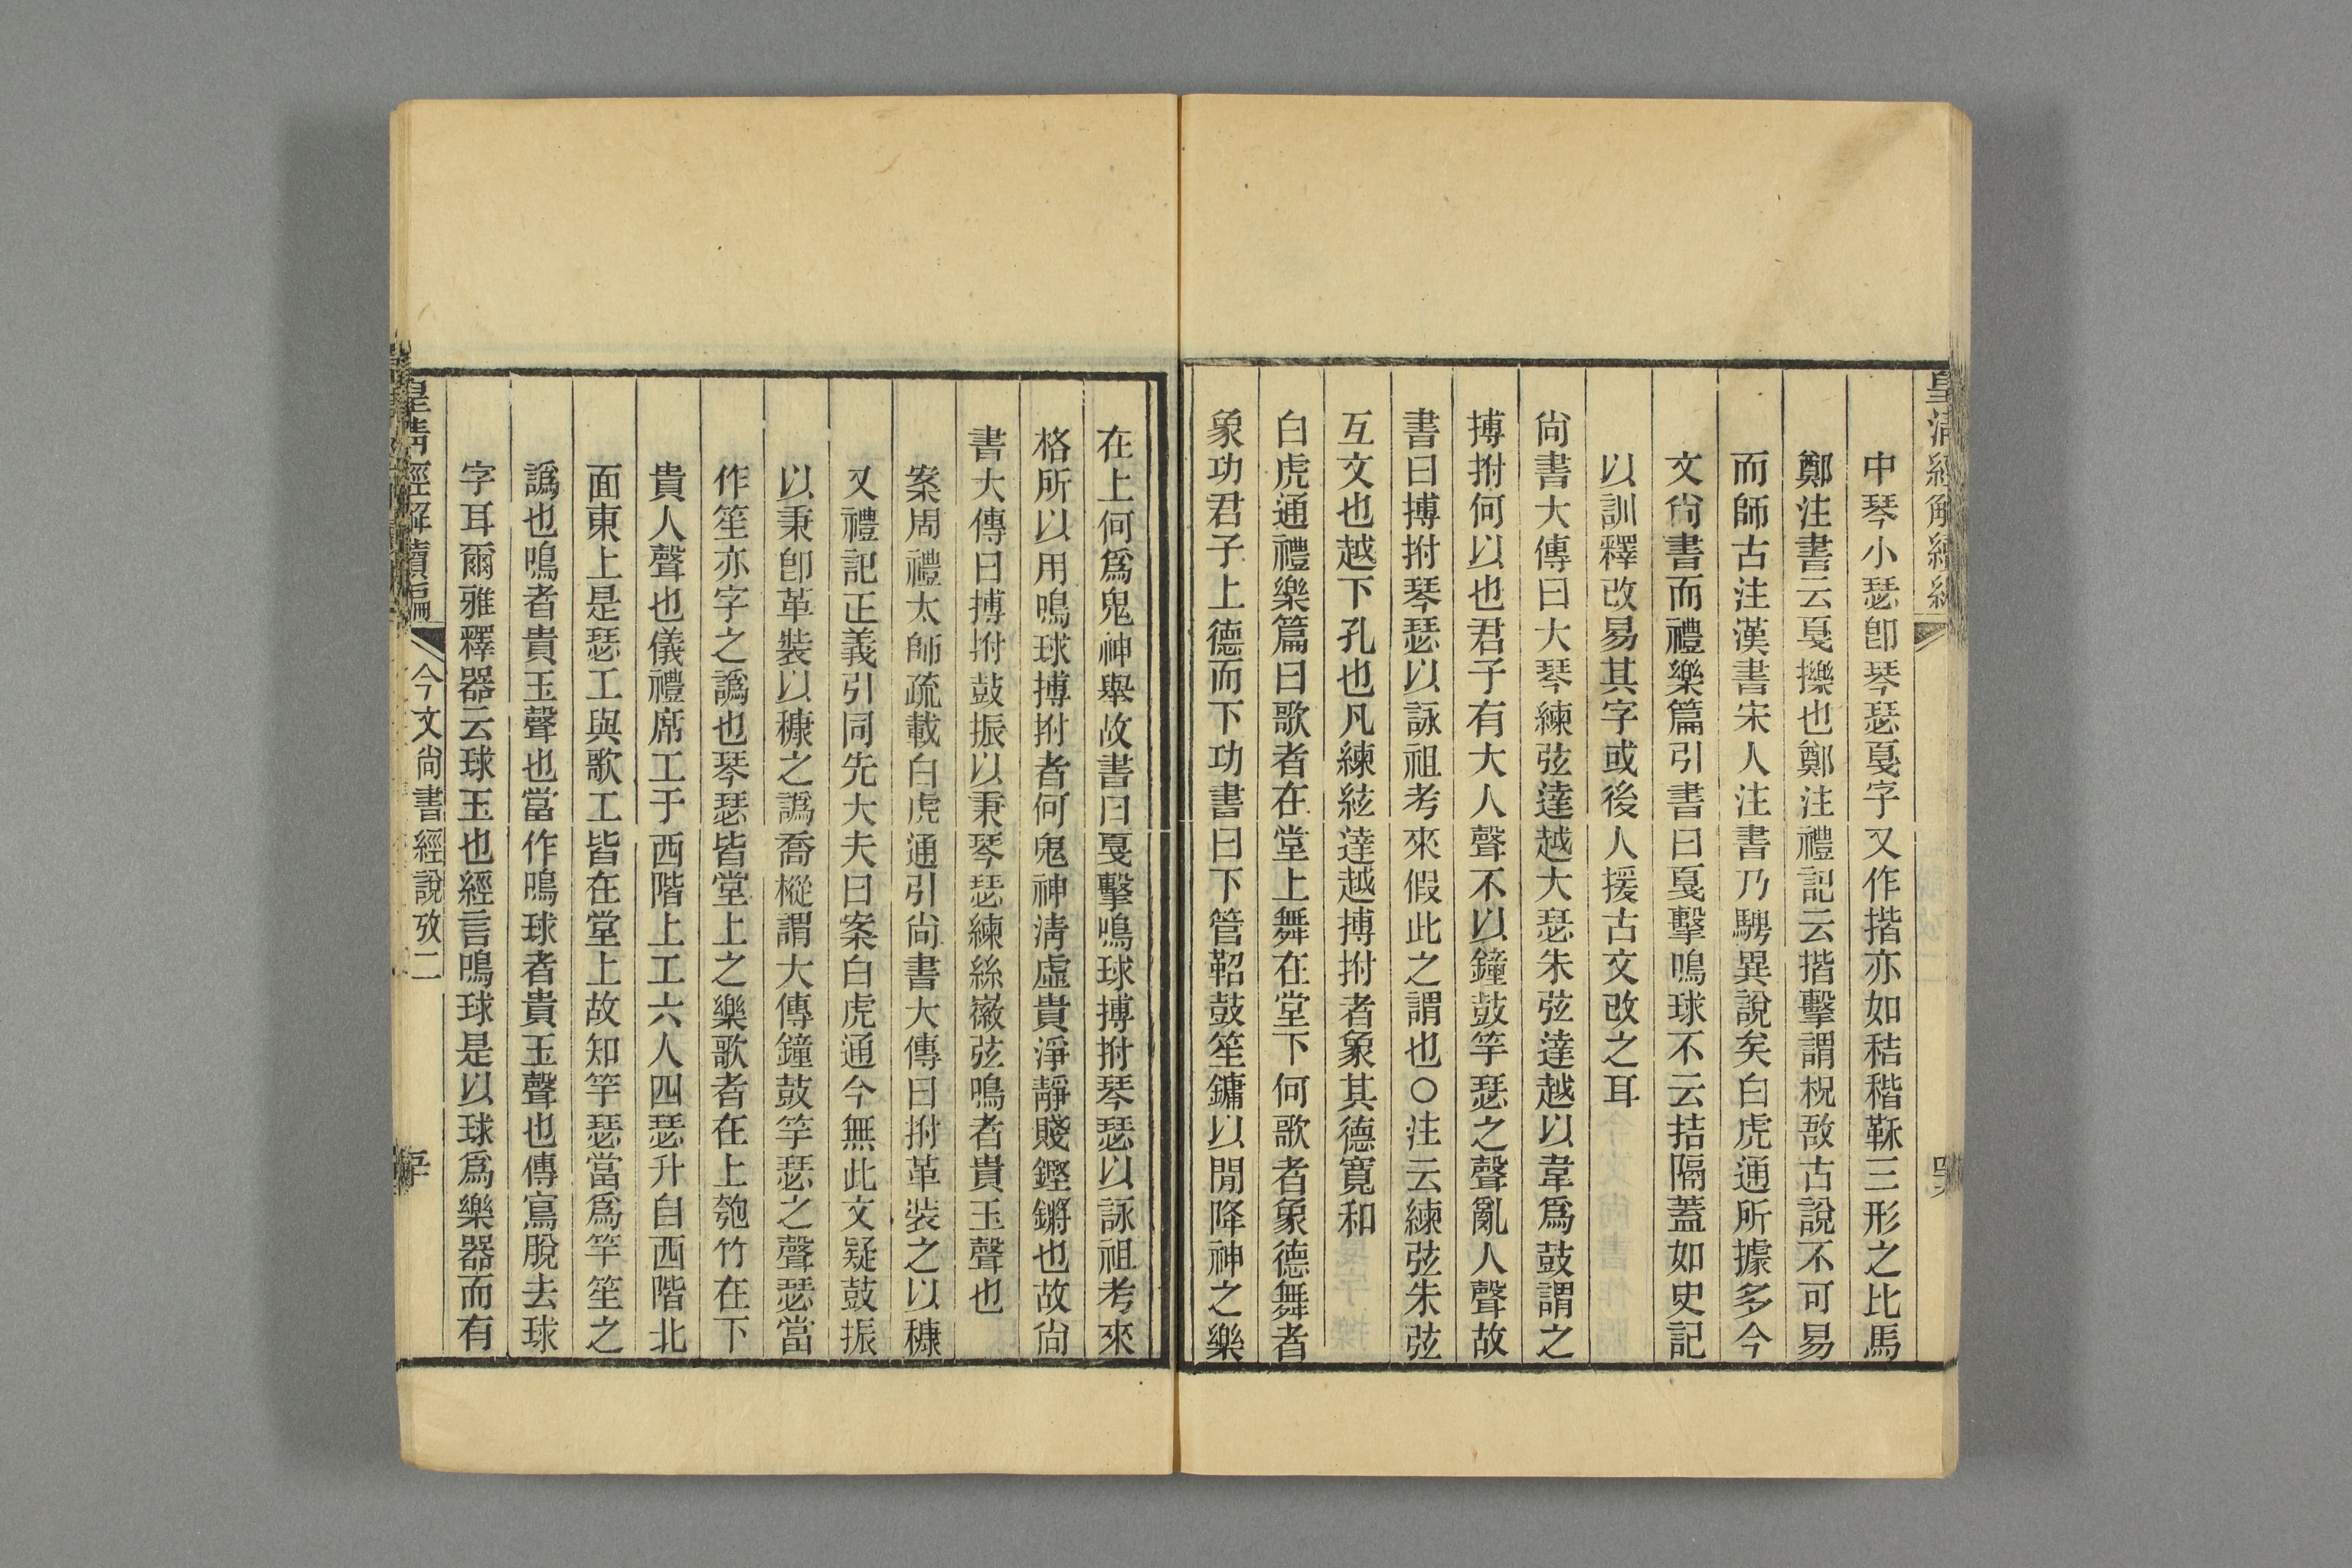 中琴小瑟卽琴瑟戛字又作揩亦如秸稭䩢三形之比馬
鄭注書云戛擽也鄭注禮記云揩擊謂柷敔古說不可易
而師古注漢書宋人注書乃騁異說矣白虎通所據多今
文尙書而禮樂篇引書曰戛擊鳴球不云拮隔蓋如史記
以訓釋改易其字或後人援古文改之耳
尙書大傳曰大琴練弦達越大瑟朱弦達越以韋爲鼓謂之
搏拊何以也君子有大人聲不以鐘鼓竽瑟之聲亂人聲故
書曰搏拊琴瑟以詠祖考來假此之謂也○注云練弦朱弦
互文也越下孔也凡練絃達越搏拊者象其德寬和
白虎通禮樂篇曰歌者在堂上舞在堂下何歌者象德舞者
象功君子上德而下功書曰下管鞀鼓笙鏞以閒降神之樂
在上何爲鬼神舉故書曰戛擊鳴球搏拊琴瑟以詠祖考來
格所以用鳴球搏拊者何鬼神淸虛貴淨靜賤鏗鏘也故尙
書大傳曰搏拊鼓振以秉琴瑟練絲徽弦鳴者貴玉聲也
案周禮太師疏載白虎通引尙書大傳曰拊革裝之以穅
又禮記正義引同先大夫曰案白虎通今無此文疑鼓振
以秉卽革裝以穅之譌喬樅謂大傳鐘鼓竽瑟之聲瑟當
作笙亦字之譌也琴瑟皆堂上之樂歌者在上匏竹在下
貴人聲也儀禮席工于西階上工六人四瑟升自西階北
面東上是瑟工與歌工皆在堂上故知竽瑟當爲竽笙之
譌也鳴者貴玉聲也當作鳴球者貴玉聲也傳寫脫去球
字耳爾雅釋器云球玉也經言鳴球是以球爲樂器而有
皇淸經解續編 今文尙書經說攷二